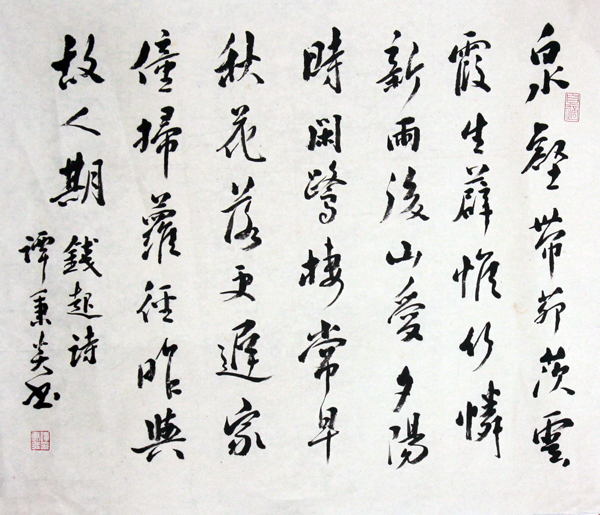 泉壑帶茆茨雲
霞生薜帷竹憐
新雨後山愛夕陽
時閑鷺棲常早
秋花落更遲家
僮掃蘿徑昨與
故人期
錢起詩
譚秉炎书